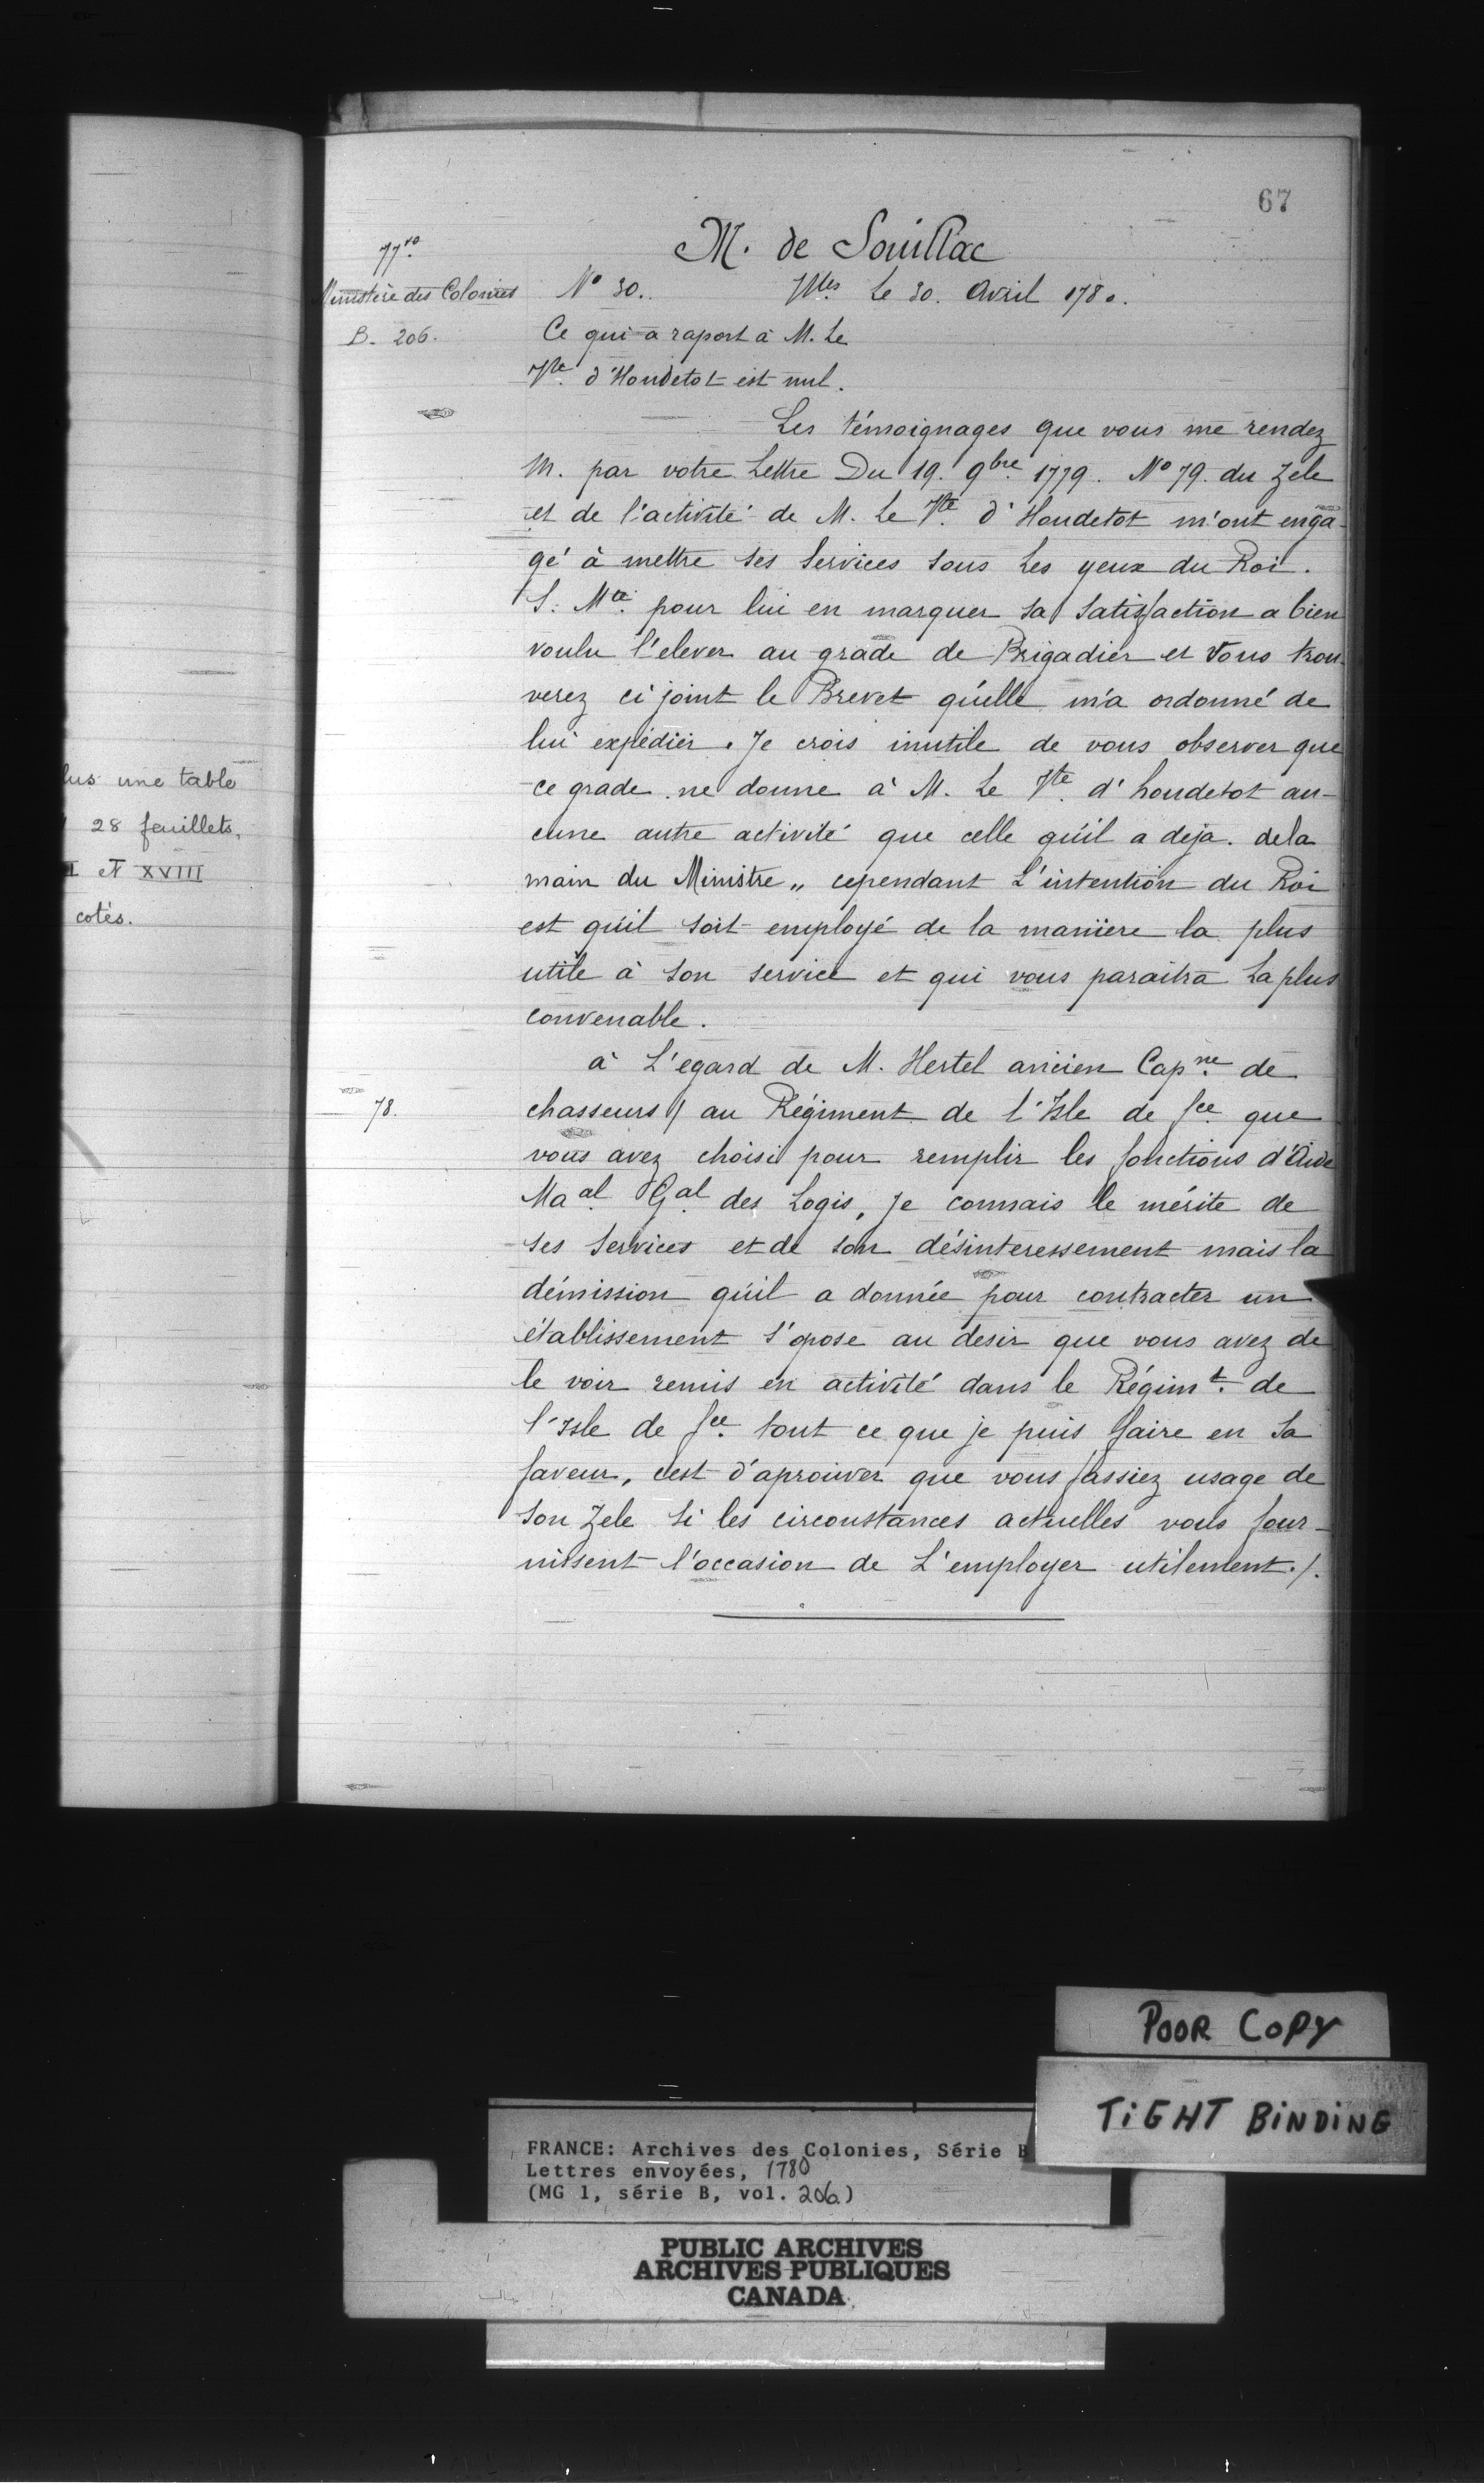 67
M. de Souillac
77vo
Ministère des Colonies
B. 206.
No 30. Vlles Le 30. Avril 1780.
Ce qui a raport à M. Le
Vte. d'Houdetot est nul.
Les témoignages que vous me rendez
M. par votre Lettre Du 19. 9bre. 1779. No 79. du Zele
et de l'activité de M. Le Vte. d'Houdetot m'ont enga-
gé à mettre ses Services sous Les yeux du Roi.
S. Mté. pour lui en marquer sa satisfaction a bien
voulu l'elever au grade de Brigadier et Vous trou-
verez ci joint le Brevet qu'elle m'a ordonné de
lui expédier. Je crois inutile de vous observer que
ce grade ne donne à M. Le Vte. d'houdetot au-
cune autre activité que celle qu'il a deja. dela
main du Ministre „ cependant L'intention du Roi
est qu'il soit employé de la maniere la plus
utile à son service et qui vous paraitra La plus
convenable.
à L'egard de M. Hertel ancien Capne. de
78.
chasseurs / au Régiment de l'Isle de fce que
vous avez choisi pour remplir les fonctions d'Aide
Maal. Gal. des Logis, Je connais le mérite de
ses Services et de son désinteressement mais la
démission qu'il a donnée pour contracter un
établissement s'opose au desir que vous avez de
le voir remis en activité dans le Régimt. de
l'Isle de fce. tout ce que je puis faire en sa
faveur, c'est d'aprouver que vous fassiez usage de
son Zele si les circonstances actuelles vous four-
nissent l'occasion de L'employer utilement ./.
lus une table
28 feuillets,
I et XVIII
cotés.
POOR COPY
TiGHT BiNDiNG
FRANCE: Archives des Colonies, Série B
Lettres envoyées, 1780
(MG 1, série B, vol. 206)
PUBLIC ARCHIVES
ARCHIVES PUBLIQUES
CANADA